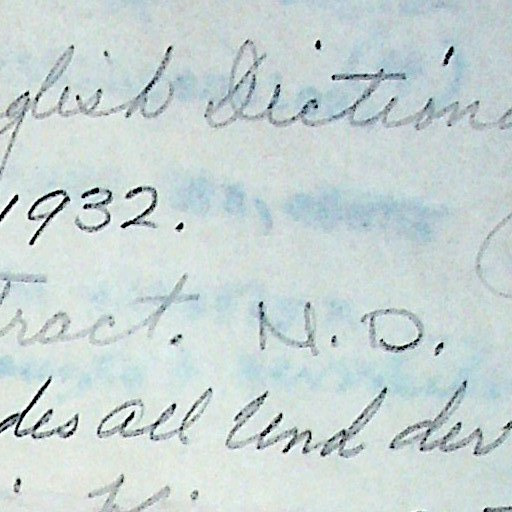 glish Dictiona
1932.
Tract. N. D.
des all Und der